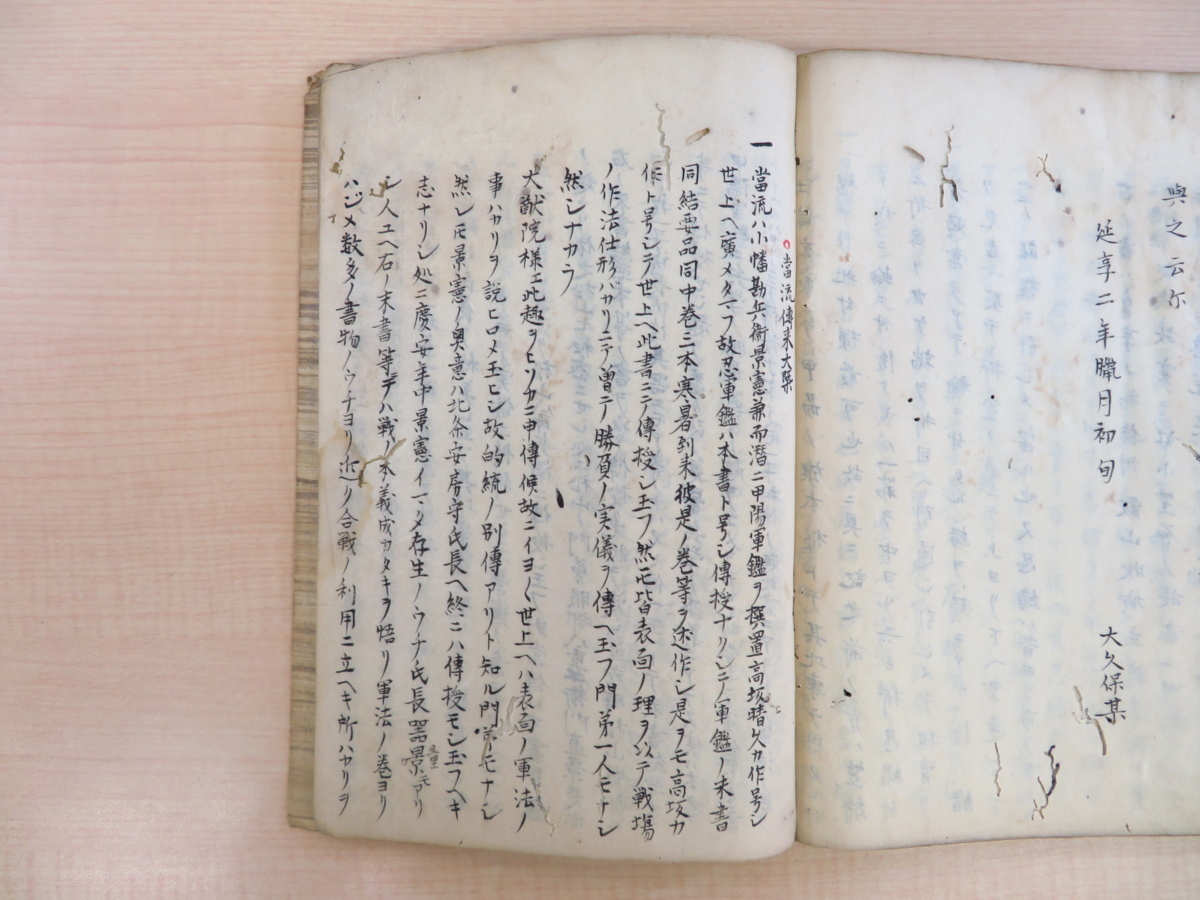 與之云尓
延享二年臘月初旬
大久保某
○當流傳来大槩
一當流ハ小幡勘兵衛景憲兼而潜ニ甲陽軍鑑ヲ撰置高坂晴久カ作号シ
世上ヘ廣メタマフ故忍軍鑑ハ本書ト号シ傳授ナリシニノ軍鑑ノ末書
同結要品同中巻三本寒暑到来彼是ノ巻等ヲ述作シ是ヲモ高坂カ
作ト号シテ世上ヘ此書ニテ傳授シ玉フ然モ皆表面ノ理ヲ以テ戦場
ノ作法仕形バカリニテ曽テ勝負ノ実儀ヲ傳ヘ玉フ門弟一人モナシ
然シナカラ
大猷院様エ此趣ヲヒソカニ申傳候故ニイヨ〱世上ヘハ表面ノ軍法ノ
事ハカリヲ説ヒロメ玉ヒシ故的統ノ別傳アリト知ル門弟モナシ
然レモ景憲ノ奥意ハ北条安房守氏長ヘ終ニハ傳授モシ玉フヘキ
志ナリシ処ニ慶安年中景憲イマタ存生ノウチ氏長器景モアリ
シ人ユヘ右ノ末書等デハ戦ノ本義成カタキヲ悟リ軍法ノ巻ヨリ
ハジメ数多ノ書物ノウチヨリ近リ合戦ノ利用ニ立ヘキ所ハカリヲ